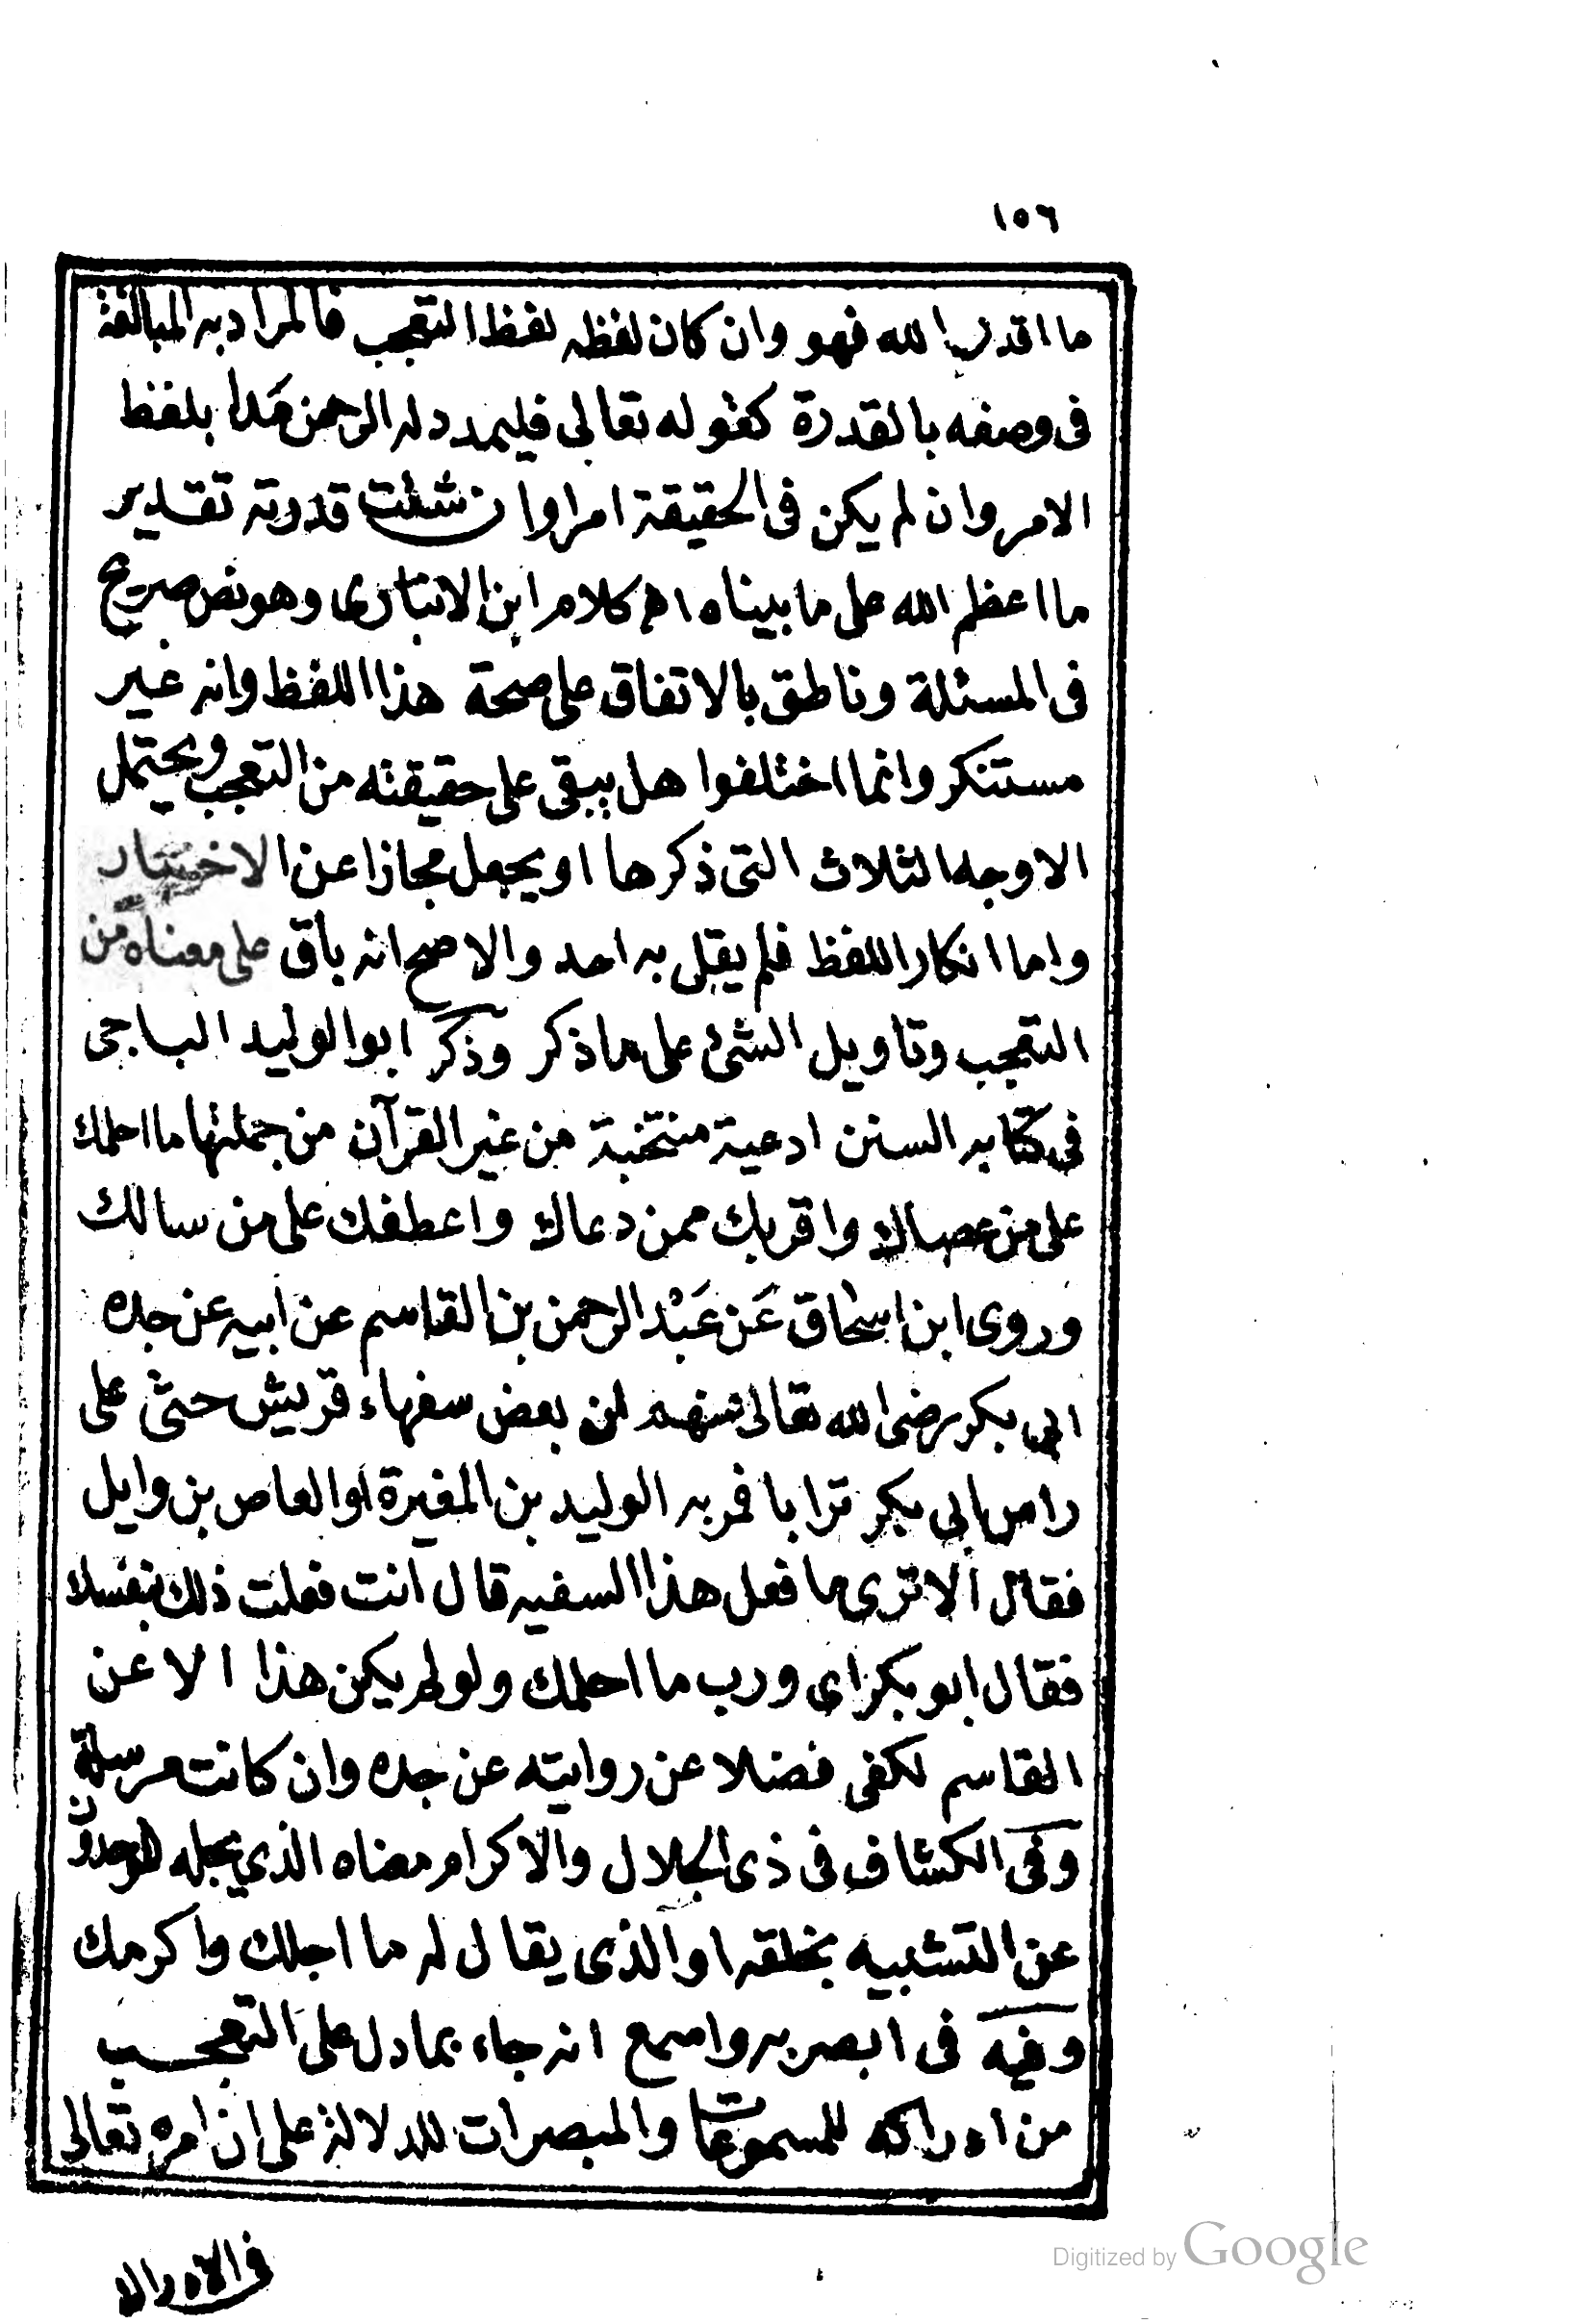 ١٥٦
ما اقدر الله فهو وان كان لفظه لفظ التعجب فالمراد به المبالغة
فى وصفه بالقدرة كقوله تعالى فليمدد له الرحمن مدا بلفظ
الامر وان لم يكن فى الحقيقة امرا وان شئت قدرته تقدير
ما اعظم الله على ما بيناه اه كلام ابن الانبارى وهو نص صريح
فى المسئلة وناطق بالاتفاق على صحة هذا اللفظ وانه غير
مستنكر وانما اختلفوا هل يبقى على حقيقته من التعجب ويحتمل
الاوجه الثلاث التى ذكرها او يجعل مجازا عن الاخبار
واما انكار اللفظ فلم يقل به احد والاصح انه باق على معناه من
التعجب وتاويل الشئ على ما ذكر وذكر ابو الوليد الباجى
فى كتابه السنن ادعية منتخبة من غير القرآن من جملتها ما احلمك
على من عصاك واقربك ممن دعاك واعطفك على من سالك
وروى ابن اسحاق عَن عَبْد الرحمن بن القاسم عن ابيه عن جده
ابى بكر رضى الله تعالى عنهم ان بعض سفهاء قريش حثى على
راس ابى بكر ترابا فمر به الوليد بن المغيرة او العاص بن وايل
فقال ألا ترى ما فعل هذا السفيه قال انت فعلت ذلك بنفسك
فقال ابو بكر اى ورب ما احلمك ولو لم يكن هذا الا عن
القاسم لكفى فضلا عن روايته عن جده وان كانت مرسلة
وفى الكشاف فى ذى الجلال والاكرام معناه الذي يجله الموحدون
عن التشبيه بخلقه او الذى يقال له ما اجلك واكرمك
وفيه فى ابصر به واسمع انه جاء بما دل على التعجب
من ادراكه للمسموعات والمبصرات للدلالة على ان امره تعالى
فى الادراك
Digitized by Google